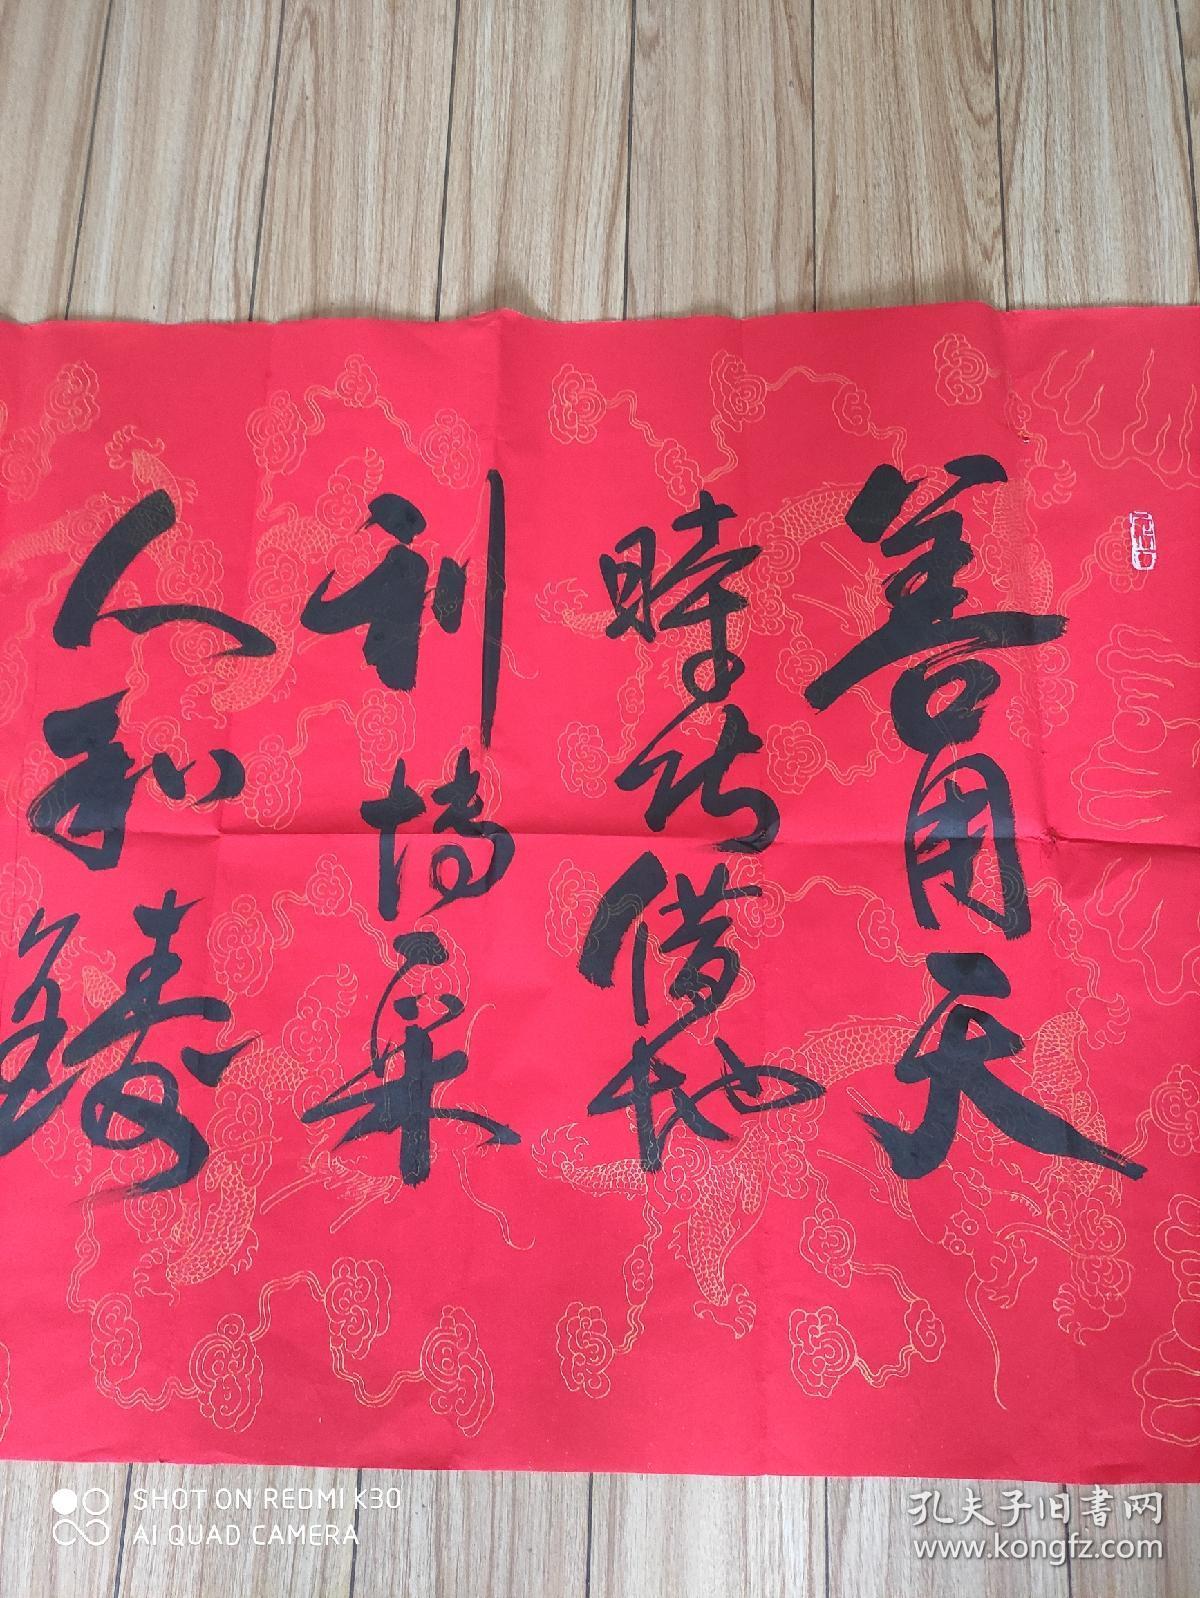 善用天
時巧借地
利博采
人和鑄
SHOT ON REDMI K30
AI QUAD CAMERA
孔夫子旧书网
www.kongfz.com